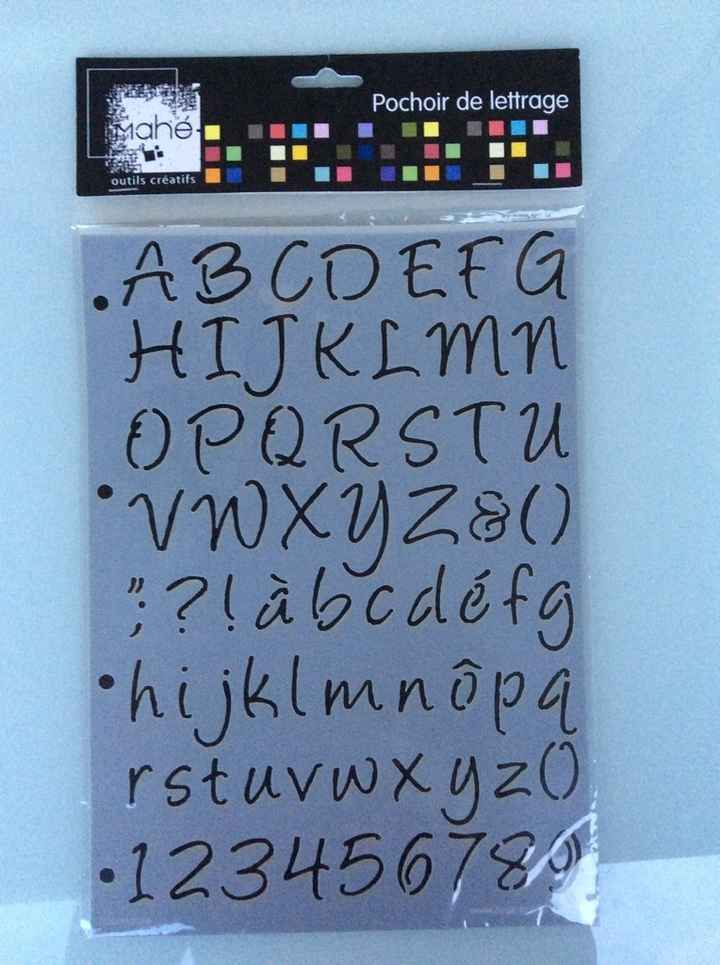 Pochoir de lettrage
Mahé
outils créatifs
A B C D E F G
H I J K L M N
O P Q R S T U
V W X Y Z & ( )
" ; ? ! à b c d é f g
h i j k l m n ô p q
r s t u v w x y z 0
1 2 3 4 5 6 7 8 9